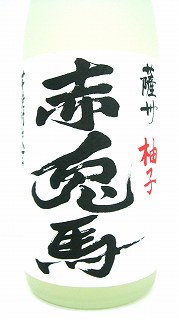 薩州
柚子
赤兎馬